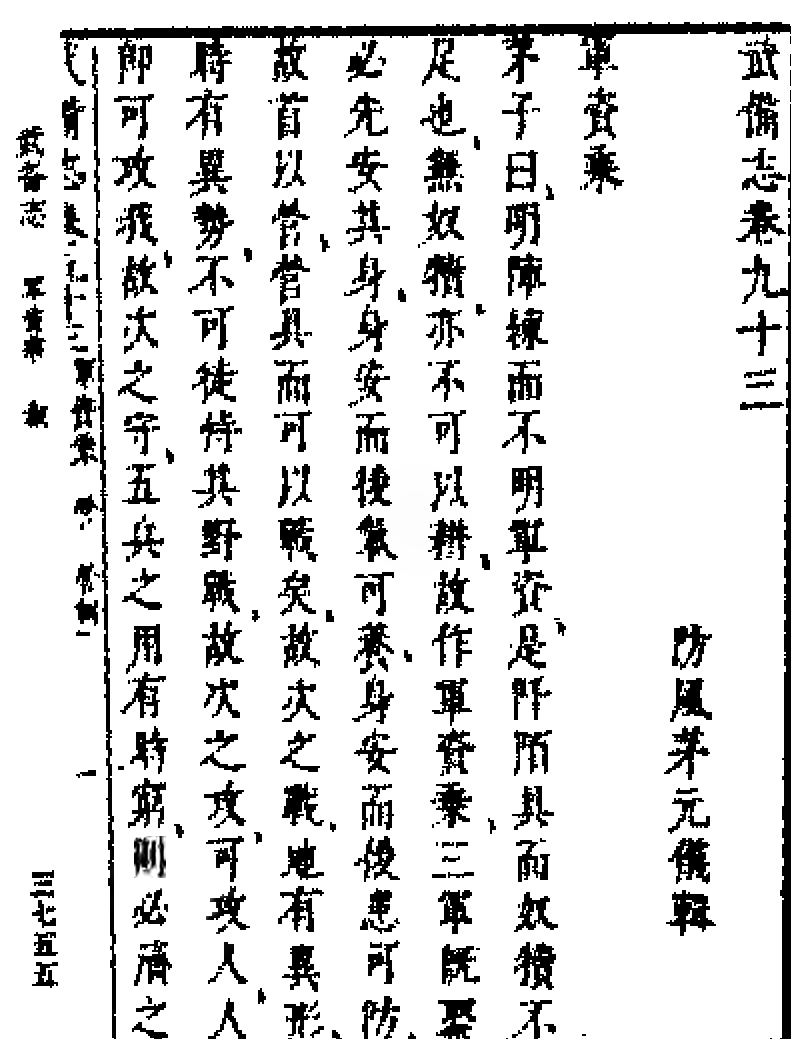 武備志卷九十三
防風茅元儀輯
軍資乘
茅子曰明陣練而不明軍資是阡陌具而奴犢不
足也無奴犢亦不可以耕故作軍資乘三軍既聚
必先安其身身安而後氣可養身安而後患可防
故首以營營具而可以戰矣故次之戰地有異形
時有異勢不可徒恃其野戰故次之攻可攻人人
即可攻我故次之守五兵之用有時窮則必濟之
武備志 軍資乘
三七五五